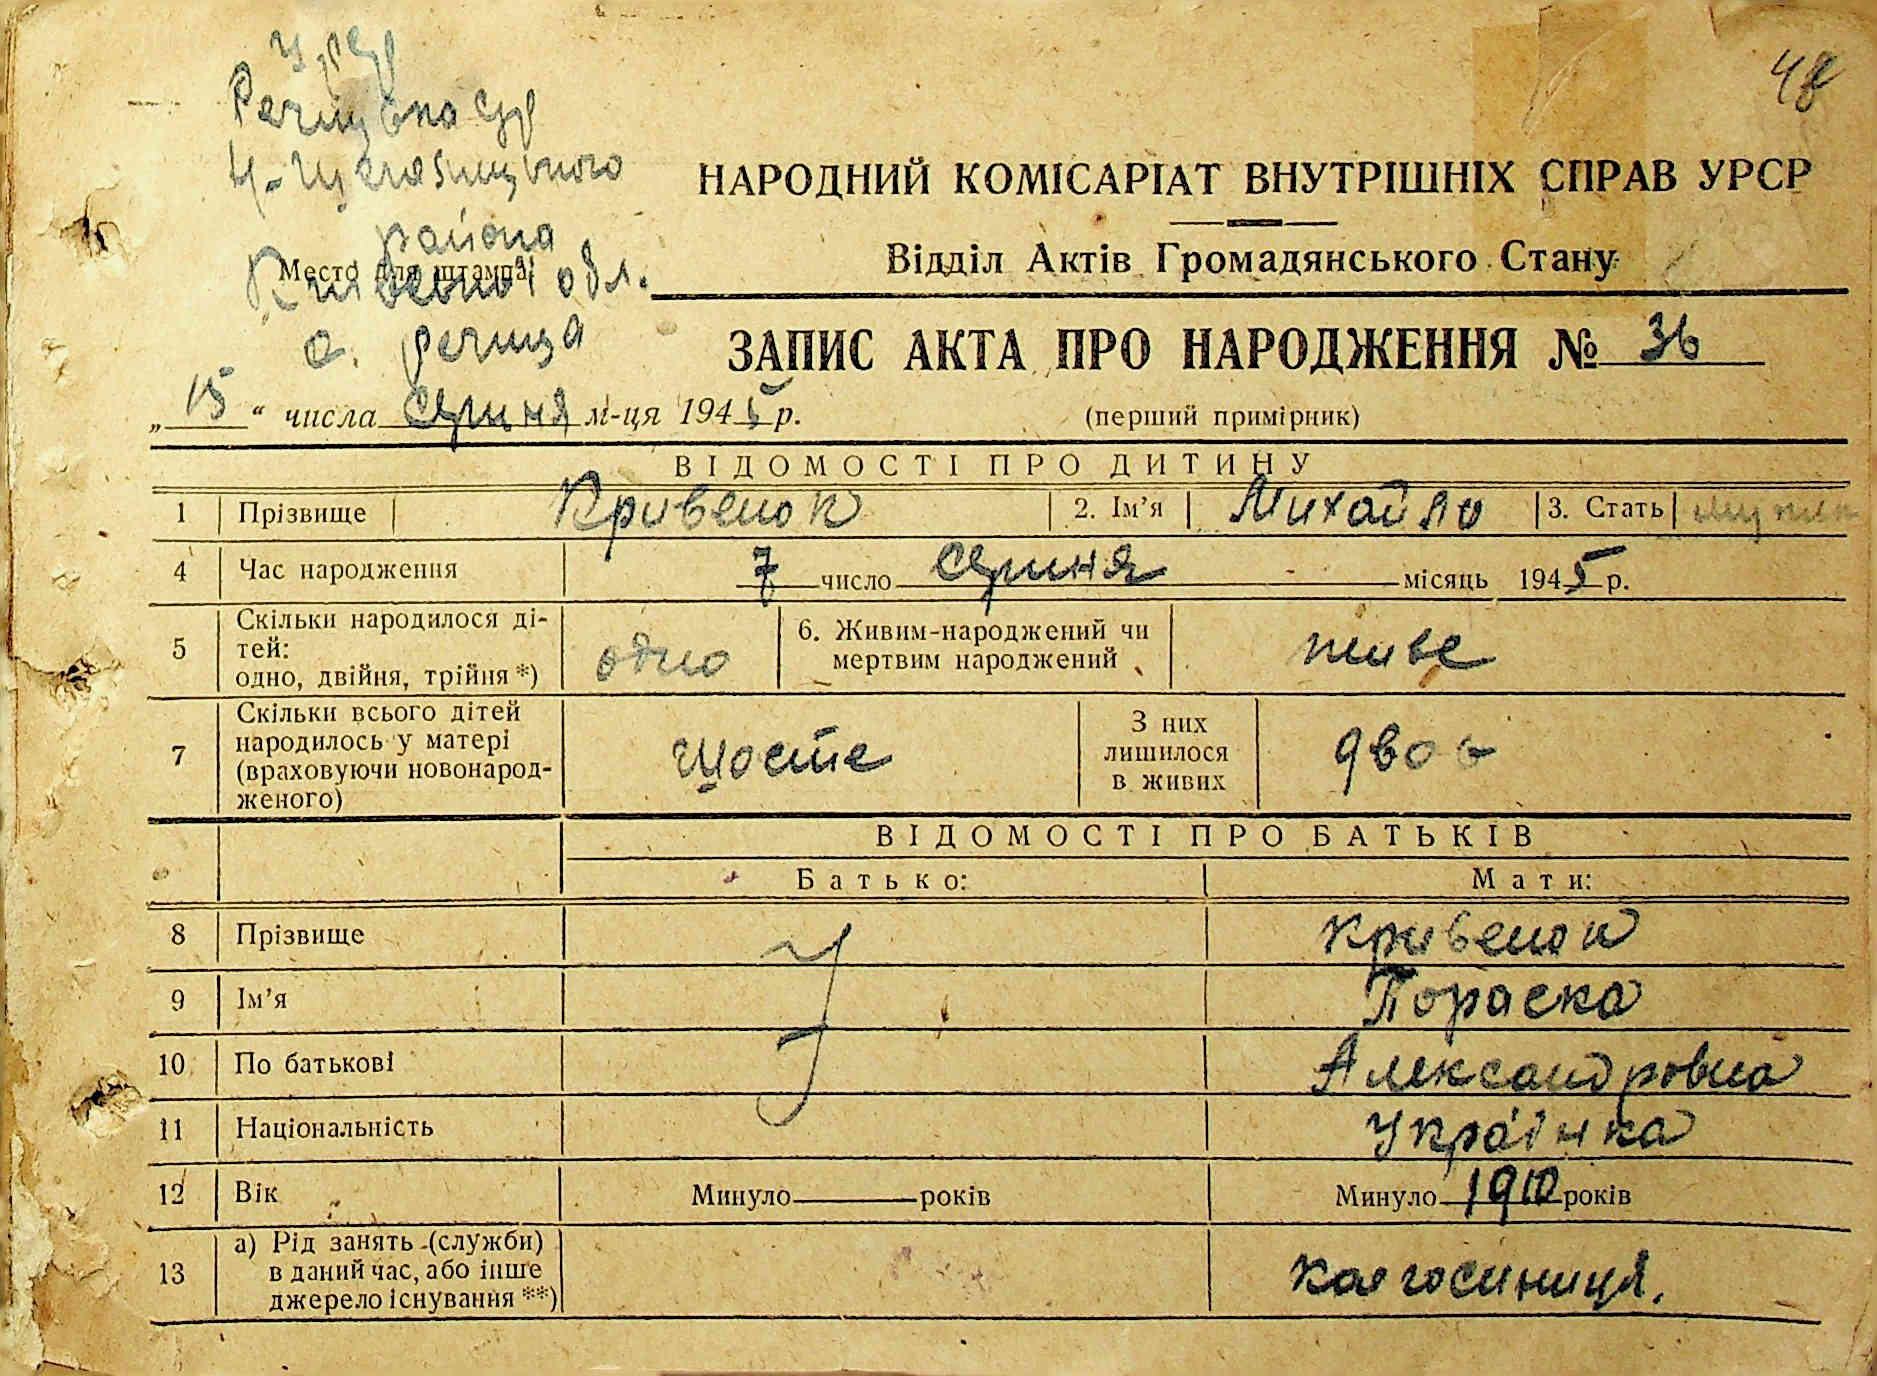 48
УРСР
Речицька с/р
Н-Шепелицького
района
Место для штампа
Київської обл.
с. Речица
НАРОДНИЙ КОМІСАРІАТ ВНУТРІШНІХ СПРАВ УРСР
Відділ Актів Громадянського Стану
ЗАПИС АКТА ПРО НАРОДЖЕННЯ № 36
„15“ числа серпня м-ця 1945 р.
(перший примірник)
ВІДОМОСТІ ПРО ДИТИНУ
1 Прізвище Кривенок 2. Ім’я Михайло 3. Стать
4 Час народження 7 число серпня місяць 1945 р.
5 Скільки народилося ді-
тей:
одно, двійня, трійня *) одно
6. Живим-народжений чи
мертвим народжений живе
7 Скільки всього дітей
народилось у матері
(враховуючи новонарод-
женого) шосте
З них
лишилося
в живих двоє
ВІДОМОСТІ ПРО БАТЬКІВ
Батько: Мати:
8 Прізвище Кривенок
9 Ім’я Пораска
10 По батькові Александровна
11 Національність Українка
12 Вік Минуло років Минуло 1910 років
13 а) Рід занять (служби)
в даний час, або інше
джерело існування **) колгоспниця.